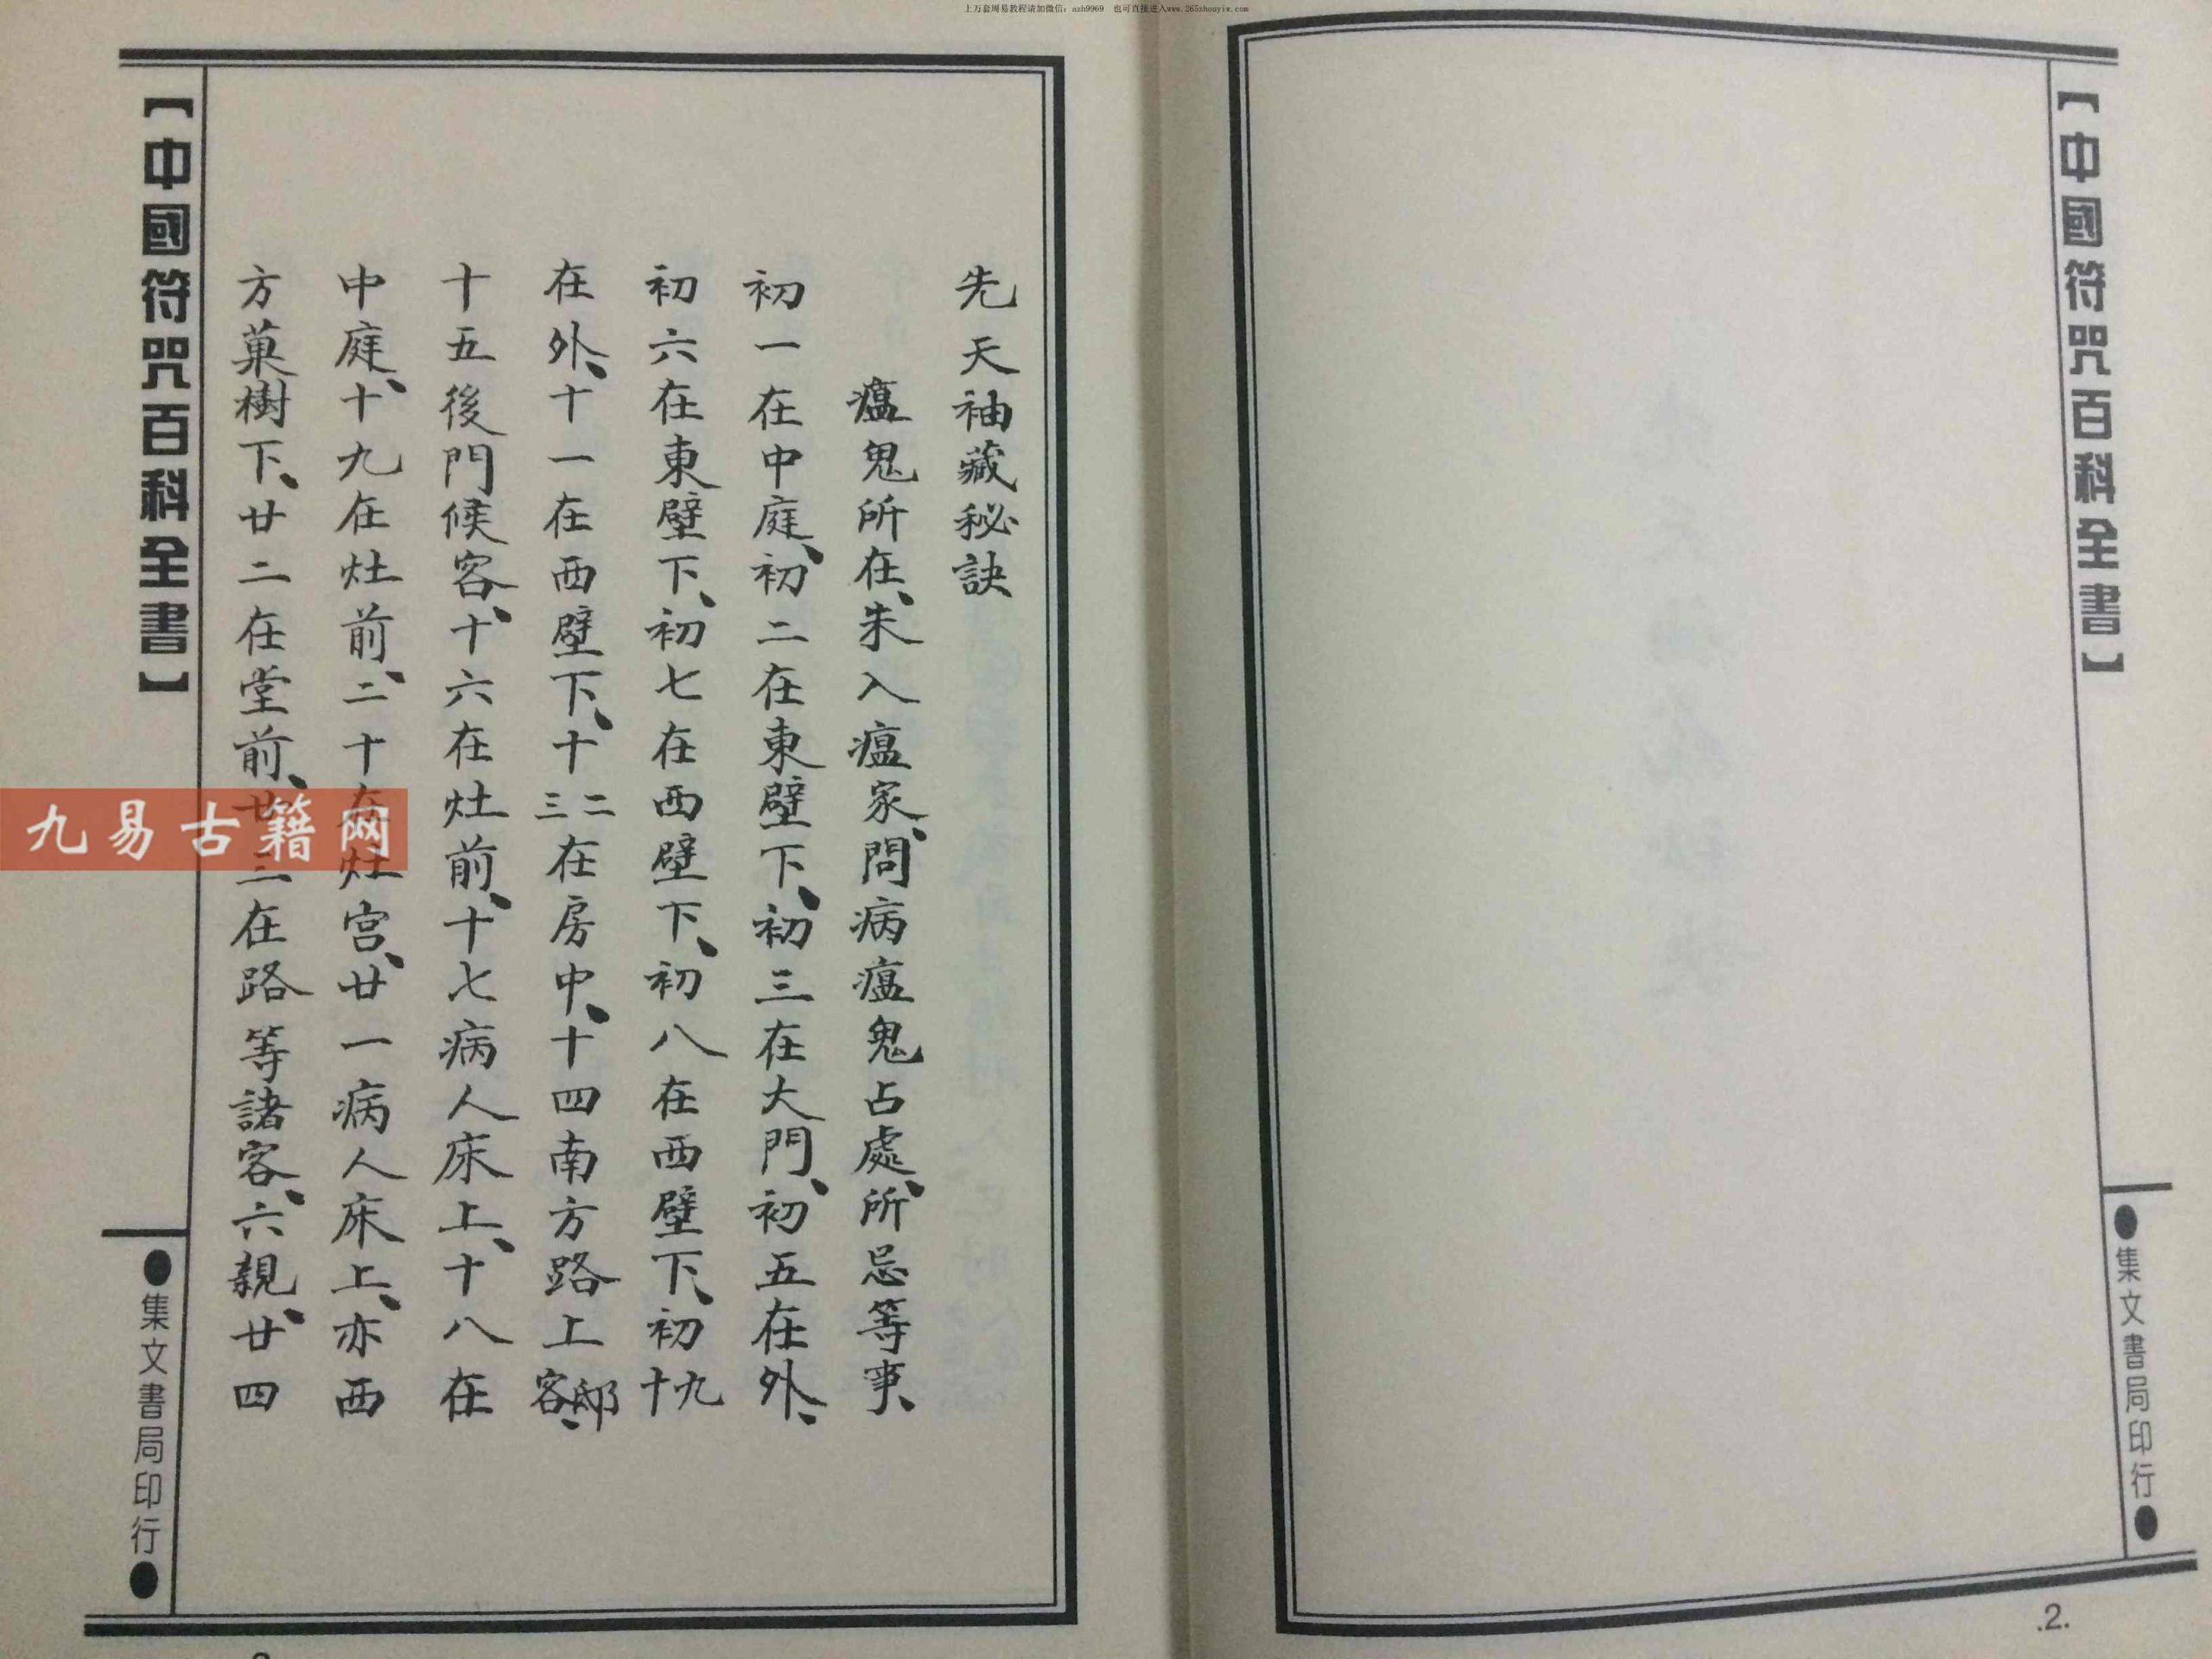 上万套周易教程请加微信：azh9969　也可直接进入www.265zhouyiw.com
【中國符咒百科全書】
●集文書局印行●
.2.
先天袖藏秘訣
瘟鬼所在、朱入瘟家、問病瘟鬼占處、所忌等事、
初一在中庭、初二在東壁下、初三在大門、初五在外、
初六在東壁下、初七在西壁下、初八在西壁下、初九十
在外、十一在西壁下、十二三在房中、十四南方路上邸客、
十五後門候客、十六在灶前、十七病人床上、十八在
中庭、十九在灶前、二十在灶宫、廿一病人床上、亦西
方菓樹下、廿二在堂前、廿三在路等諸客、六親、廿四
【中國符咒百科全書】
●集文書局印行●
九易古籍网